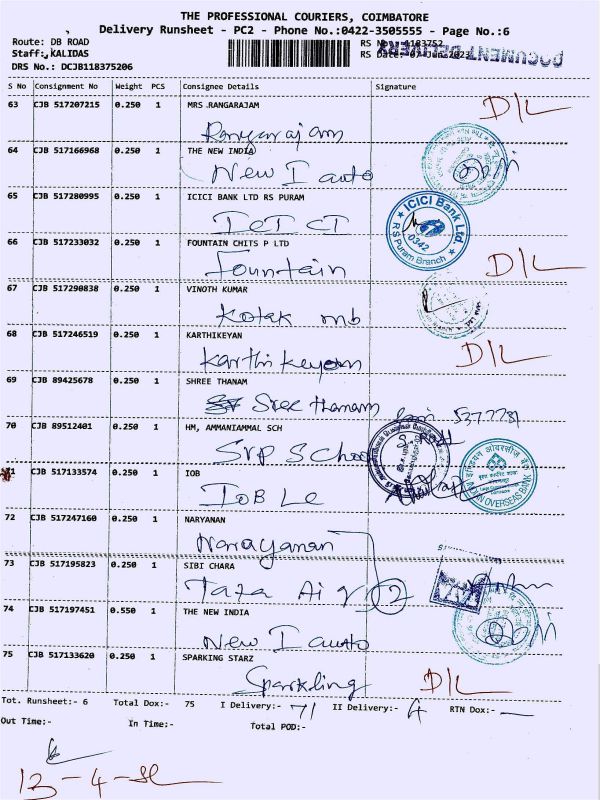 THE PROFESSIONAL COURIERS, COIMBATORE
Delivery Runsheet - PC2 - Phone No.:0422-3505555 - Page No.:6
Route: DB ROAD
RS No.: 1183752
DOCUMENT DELIVERY
Staff: KALIDAS
RS Date: 07 Jun 2023
DRS No.: DCJB118375206
S No Consignment No Weight PCS Consignee Details Signature
63 CJB 517207215 0.250 1 MRS.RANGARAJAM
D/L
Rangarajam
64 CJB 517166968 0.250 1 THE NEW INDIA
New I auto
65 CJB 517280995 0.250 1 ICICI BANK LTD RS PURAM
ICICI Bank Ltd.
0342
RS Puram Branch
66 CJB 517233032 0.250 1 FOUNTAIN CHITS P LTD
Fountain
D/L
67 CJB 517290838 0.250 1 VINOTH KUMAR
Kotak mb
68 CJB 517246519 0.250 1 KARTHIKEYAN
Karthikeyan
D/L
69 CJB 89425678 0.250 1 SHREE THANAM
Sree thanam
70 CJB 89512401 0.250 1 HM, AMMANIAMMAL SCH
SRP School
71 CJB 517133574 0.250 1 IOB
इंडियन ओवरसीज़ बैंक
INDIAN OVERSEAS BANK
IOB Le
72 CJB 517247160 0.250 1 NARYANAN
Narayanan
73 CJB 517195823 0.250 1 SIBI CHARA
Tata Ai
2
74 CJB 517197451 0.550 1 THE NEW INDIA
New I auto
75 CJB 517133620 0.250 1 SPARKING STARZ
Sparkling
D/L
Tot. Runsheet:- 6 Total Dox:- 75 I Delivery:- 71 II Delivery:- 4 RTN Dox:- —
Out Time:- In Time:- Total POD:-